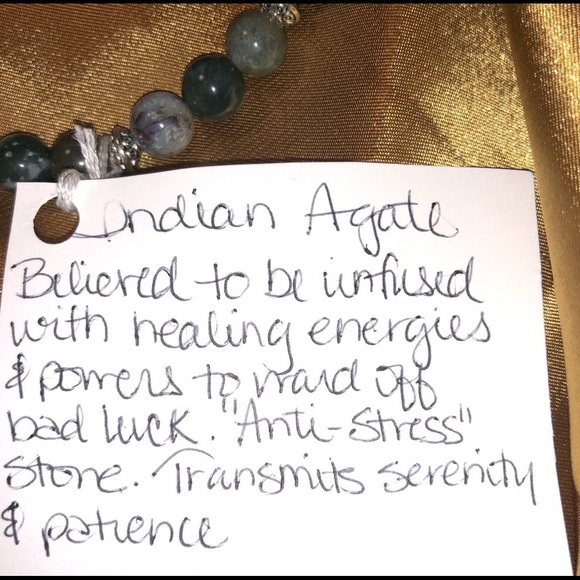 Indian Agate
Believed to be infused
with healing energies
& powers to ward off
bad luck. "Anti-Stress"
Stone. Transmits serenity
& patience